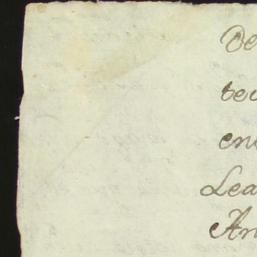 De
teo
en
Lea
An